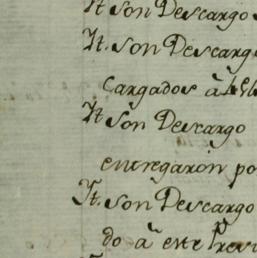 It son Descargo
It. son Descargo
cargados â
It son Descargo
entregaron po
Yt. son Descargo
do â este